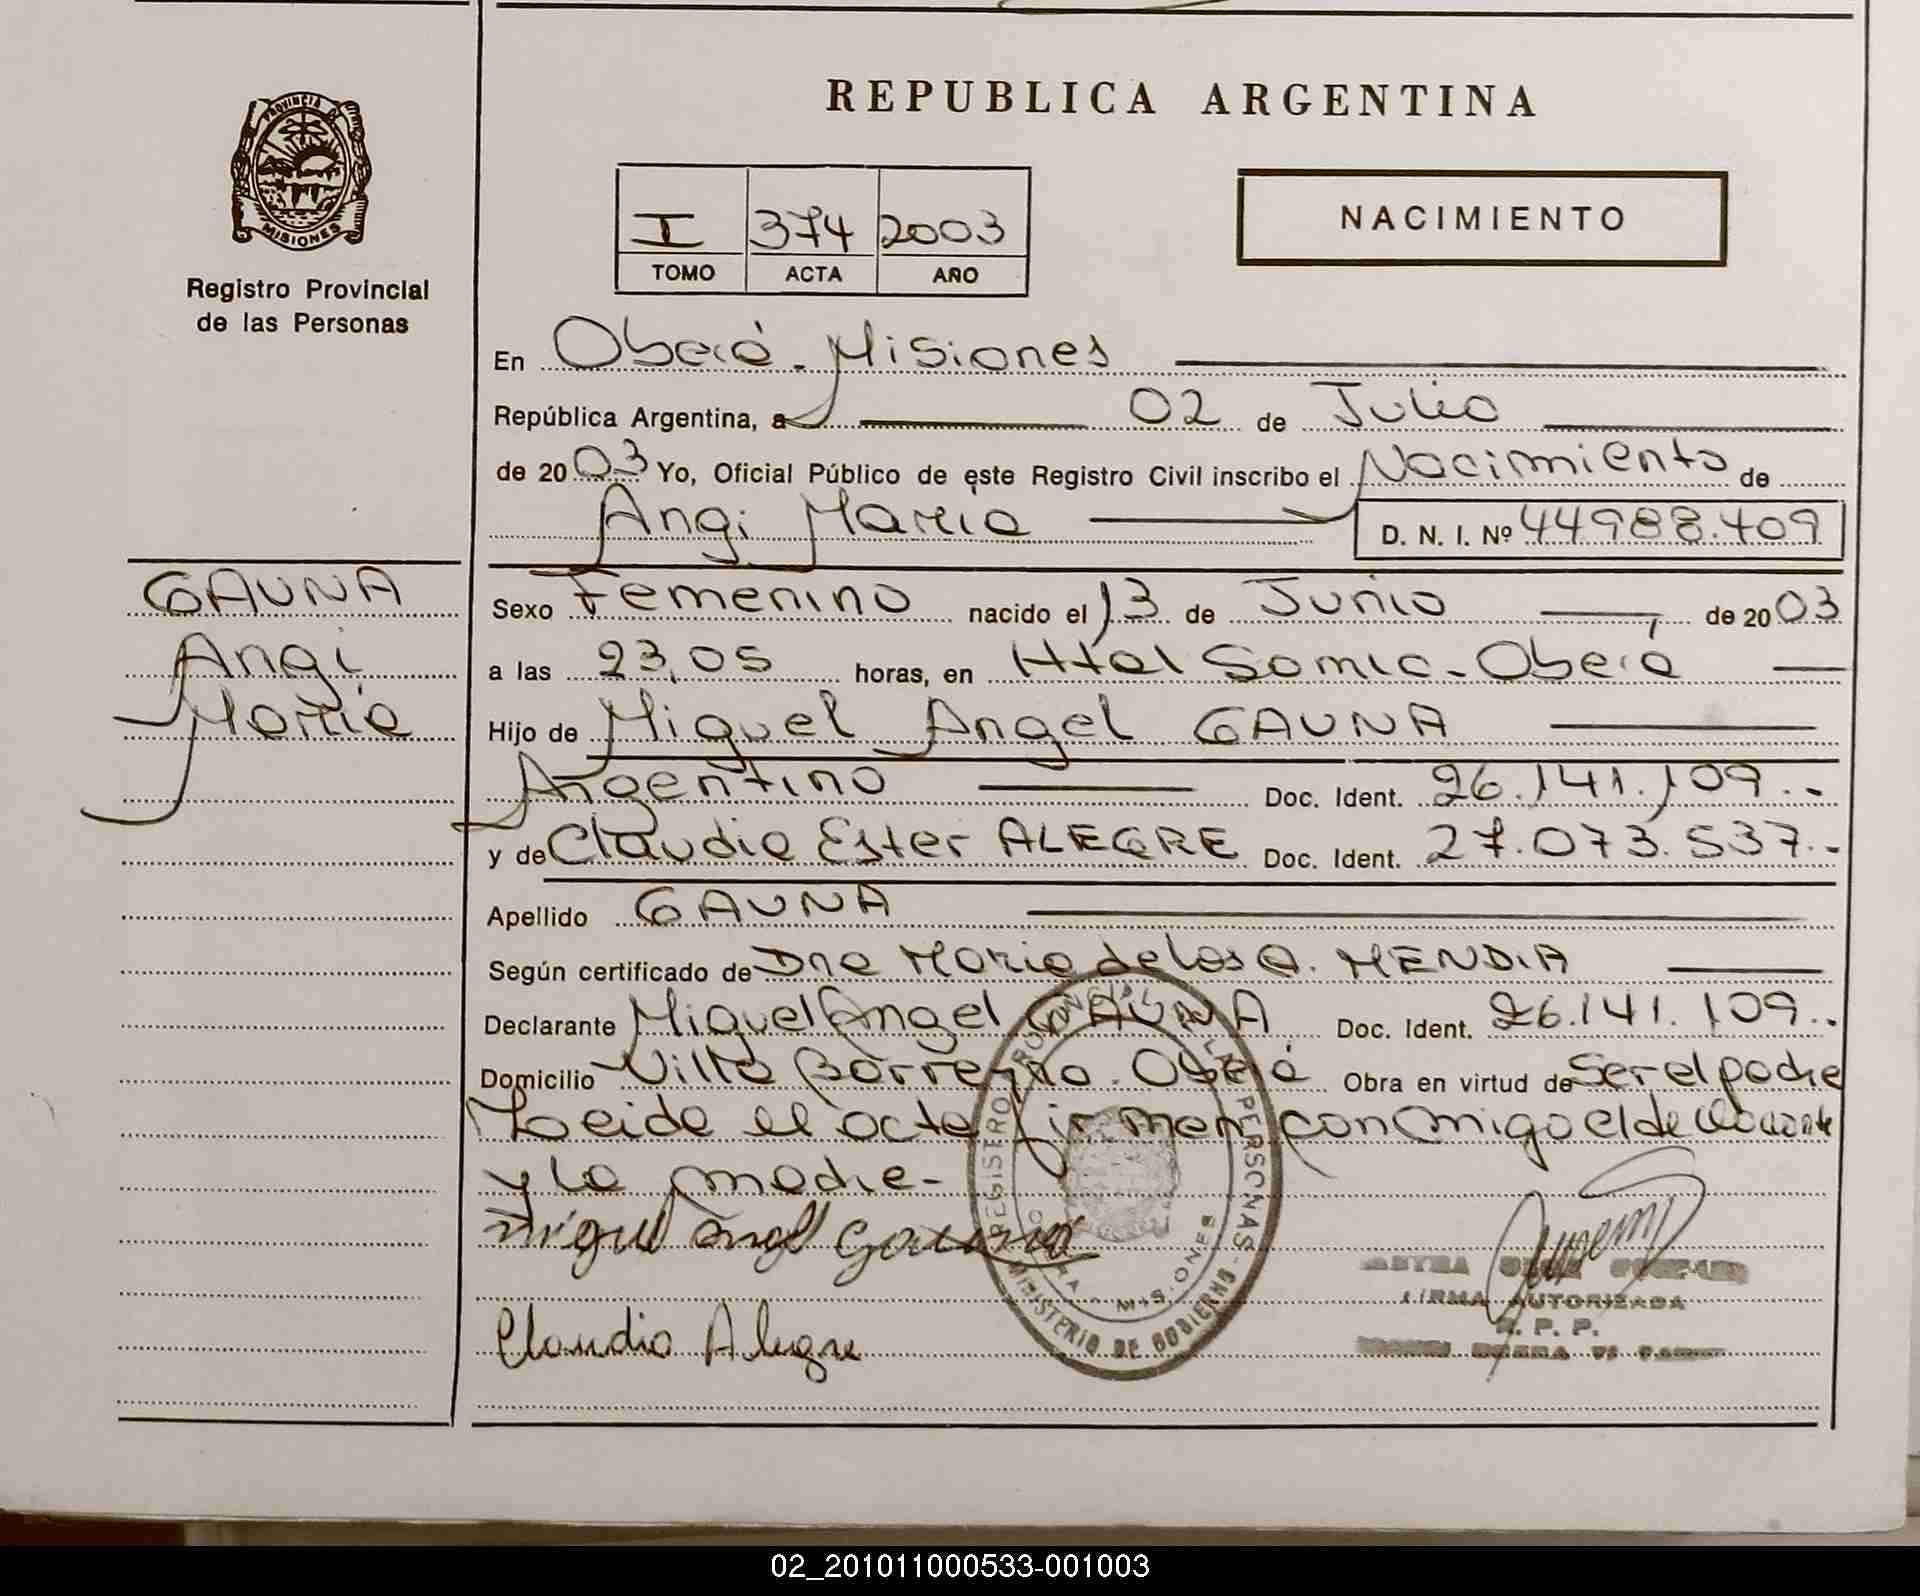 REPUBLICA ARGENTINA
PROVINCIA DE
MISIONES
Registro Provincial
de las Personas
I 374 2003
TOMO ACTA AÑO
NACIMIENTO
En Oberá - Misiones
República Argentina, a 02 de Julio
de 2003 Yo, Oficial Público de este Registro Civil inscribo el Nacimiento de
Angi Maria D. N. I. Nº 44988.409
GAUNA
Angi
Maria
Sexo Femenino nacido el 13 de Junio de 2003
a las 23,05 horas, en Htal Samic - Oberá
Hijo de Miguel Angel GAUNA
Argentino Doc. Ident. 26.141.109..
y de Claudia Ester ALEGRE Doc. Ident. 27.073.537..
Apellido GAUNA
Según certificado de Dra Maria de los A. MENDIA
Declarante Miguel Angel GAUNA Doc. Ident. 26.141.109..
Domicilio Villa Barreyro. Oberá Obra en virtud de Ser el padre
Leida el acta firman conmigo el declarante
y la madre-
Miguel Angel Gauna
Claudia Alegre
REGISTRO PROVINCIAL DE LAS PERSONAS - MINISTERIO DE GOBIERNO -
MISIONES
FIRMA AUTORIZADA
R. P. P.
02_201011000533-001003